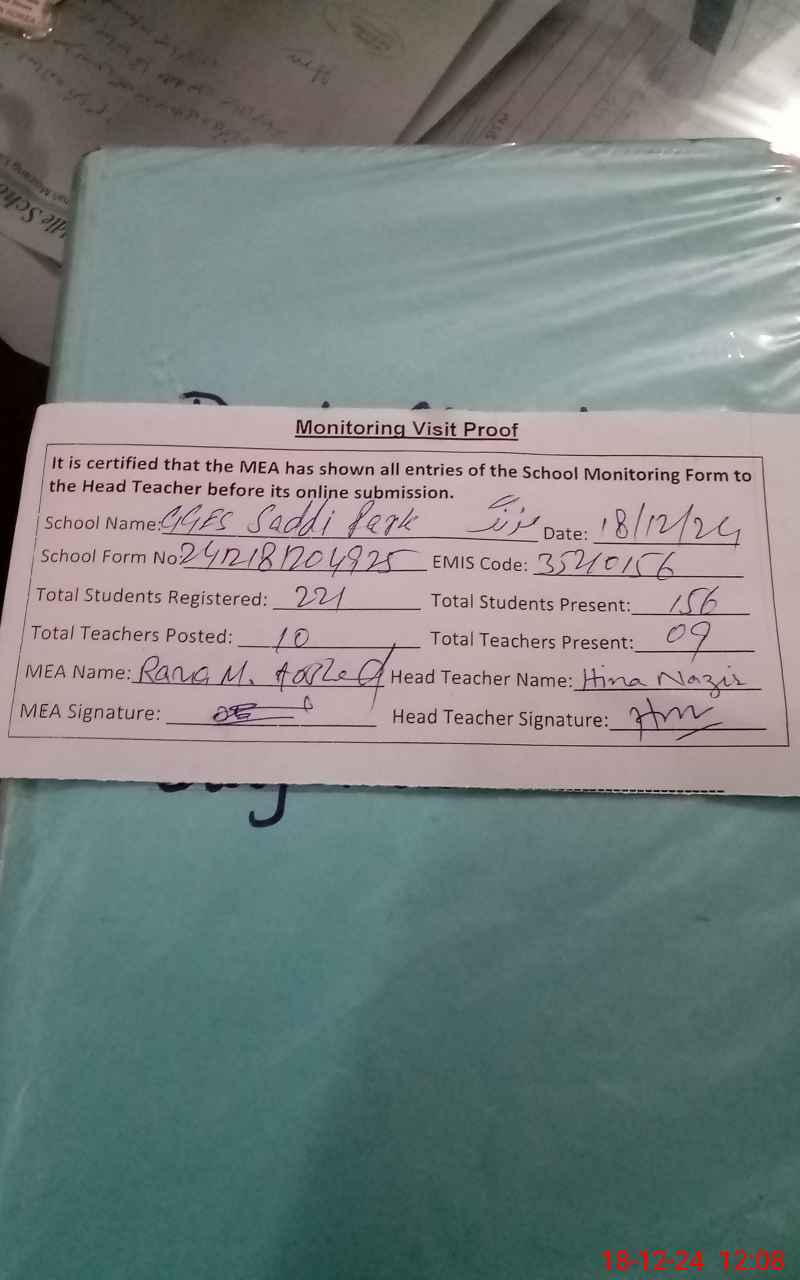 Monitoring Visit Proof
It is certified that the MEA has shown all entries of the School Monitoring Form to
the Head Teacher before its online submission.
School Name: GGES Saddi Park مزنگ Date: 18/12/24
School Form No: 2412181204925 EMIS Code: 35210156
Total Students Registered: 221 Total Students Present: 156
Total Teachers Posted: 10 Total Teachers Present: 09
MEA Name: Rana M. Head Teacher Name: Hina Nazir
MEA Signature: Head Teacher Signature:
18-12-24 12:08